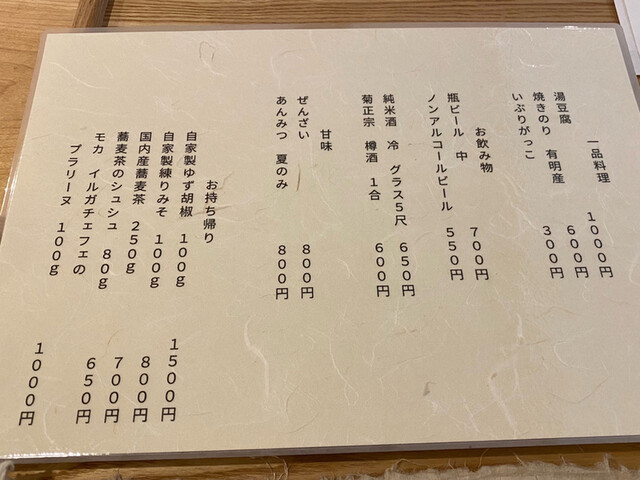 一品料理
湯豆腐 1000円
焼きのり 有明産 600円
いぶりがっこ 300円
お飲み物
瓶ビール 中 700円
ノンアルコールビール 550円
純米酒 冷 グラス5尺 650円
菊正宗 樽酒 1合 600円
甘味
ぜんざい 800円
あんみつ 夏のみ 800円
お持ち帰り
自家製ゆず胡椒 100g 1500円
自家製練りみそ 100g 800円
国内産蕎麦茶 250g 700円
蕎麦茶のシュシュ 80g 650円
モカ イルガチェフェの
プラリーヌ 100g 1000円